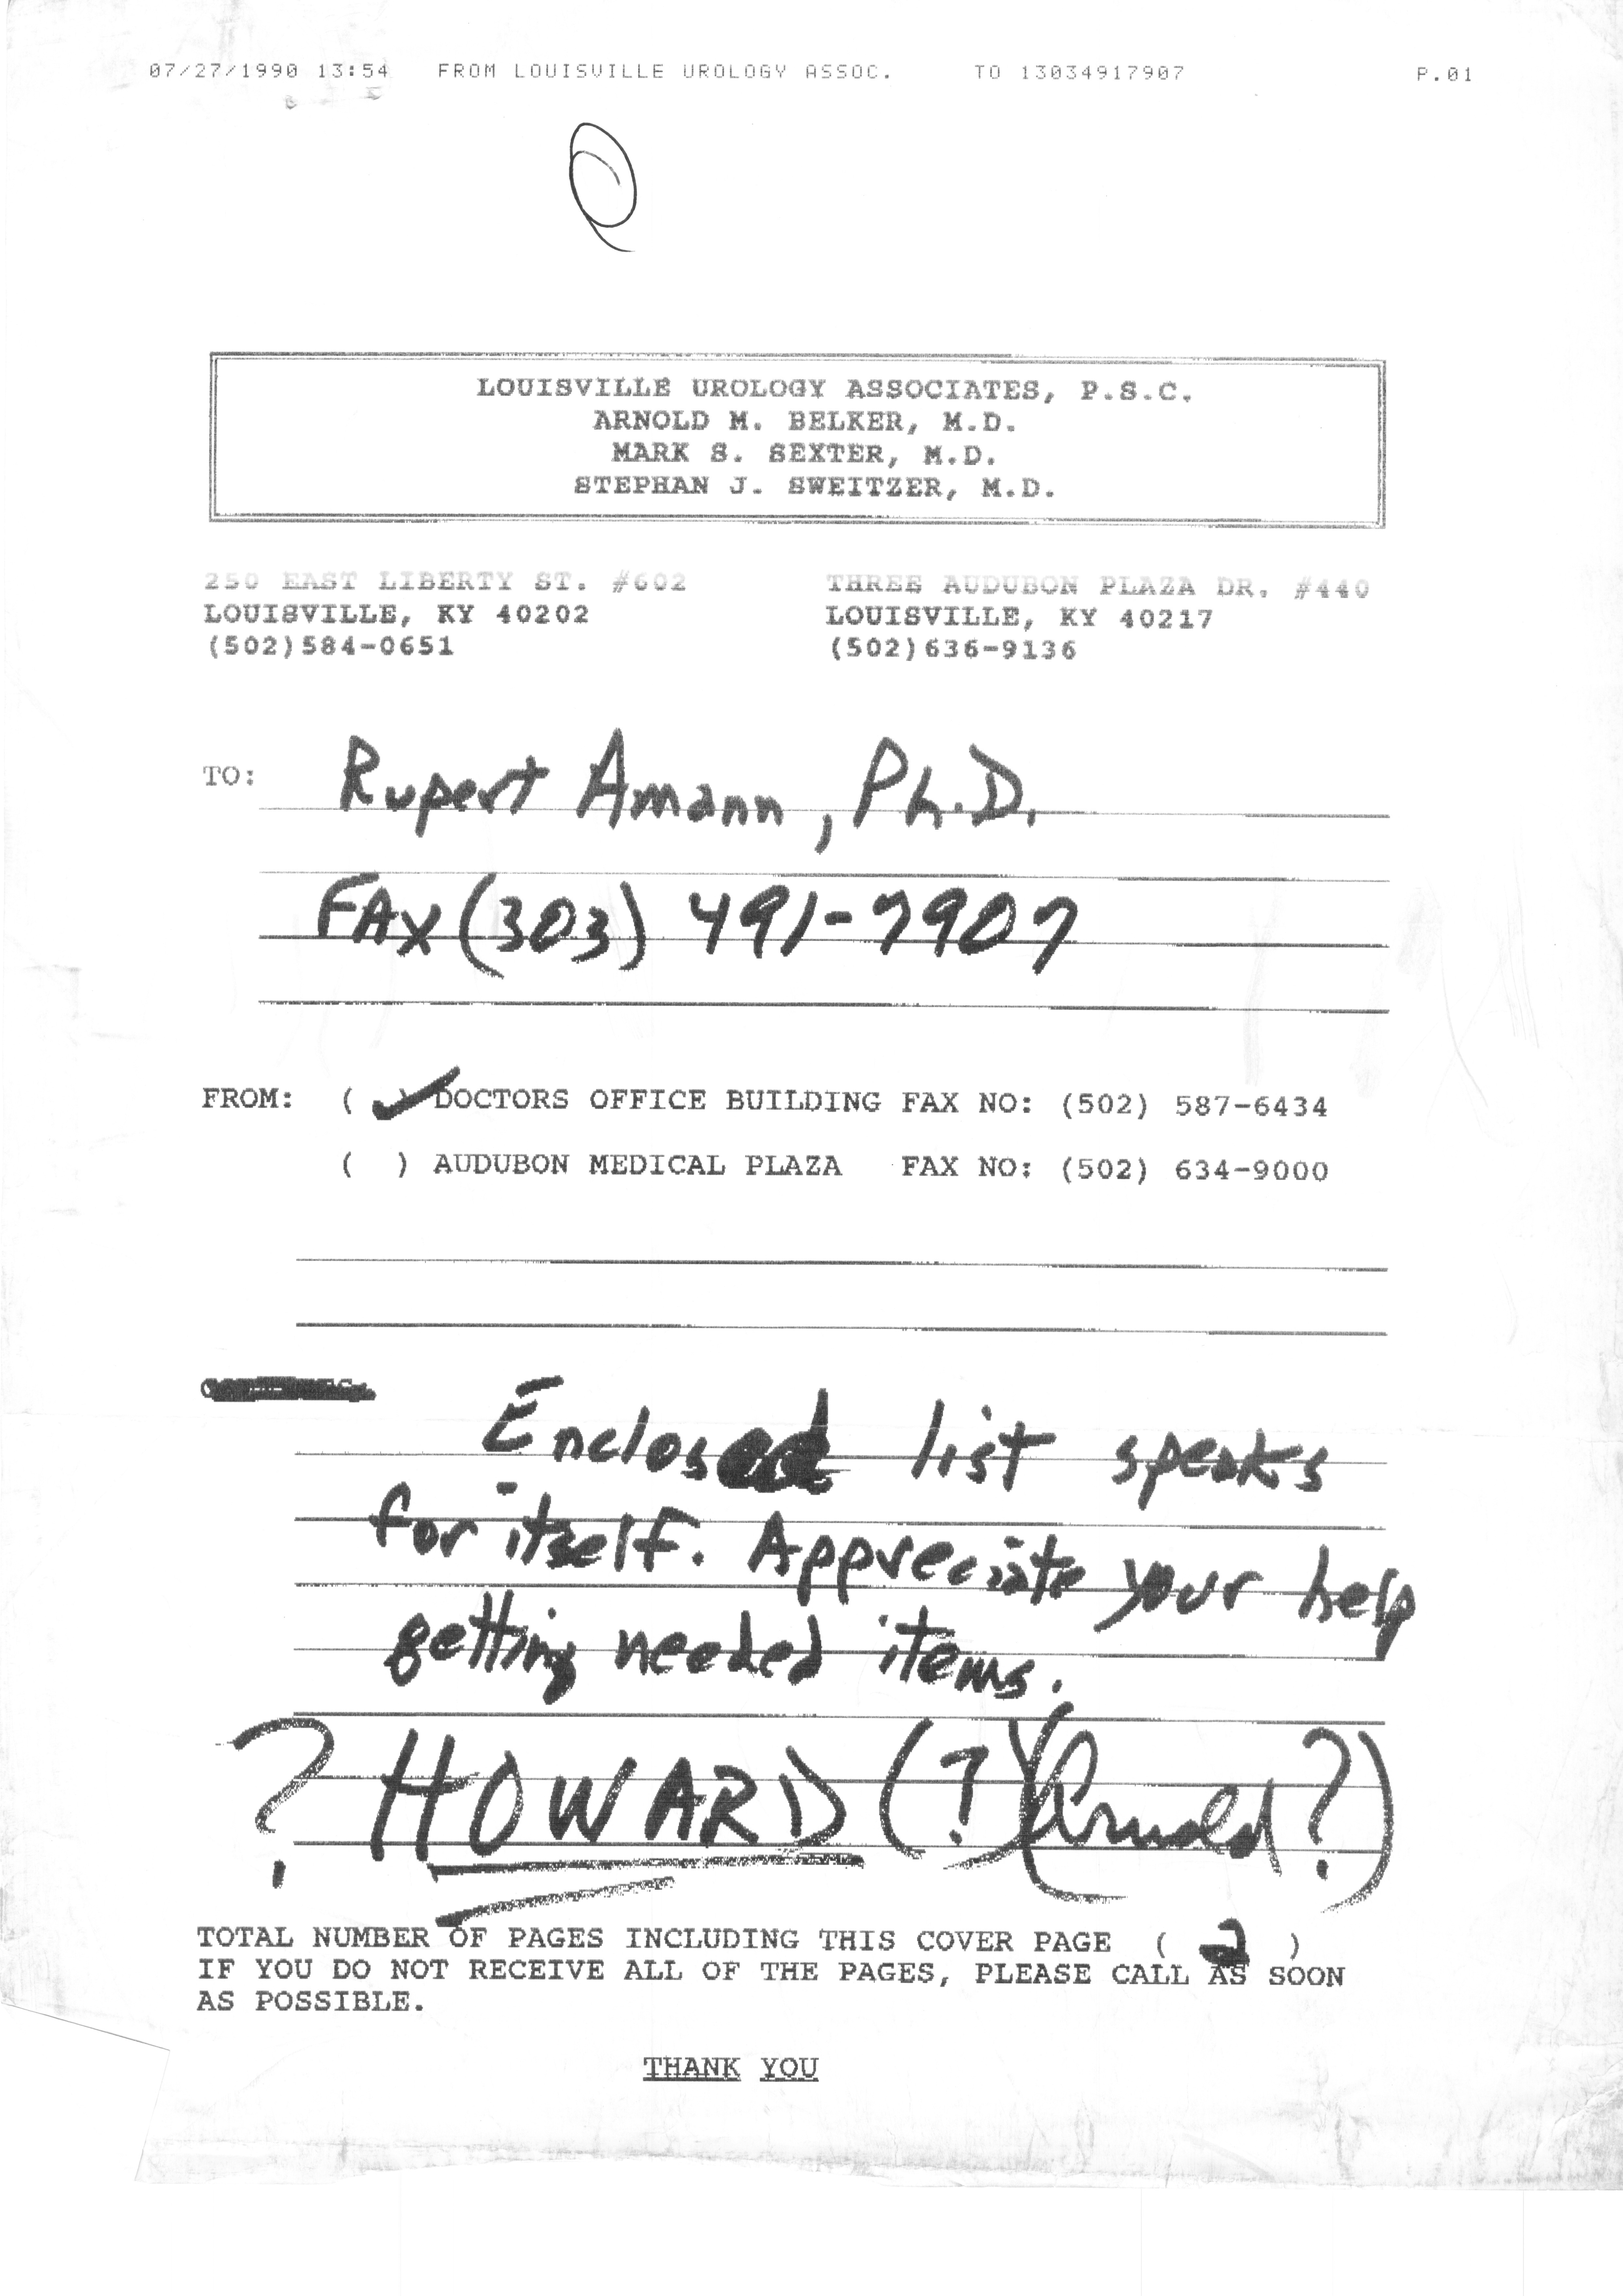 07/27/1990 13:54 FROM LOUISVILLE UROLOGY ASSOC. TO 13034917907 P.01
LOUISVILLE UROLOGY ASSOCIATES, P.S.C.
ARNOLD M. BELKER, M.D.
MARK S. SEXTER, M.D.
STEPHAN J. SWEITZER, M.D.
250 EAST LIBERTY ST. #602 THREE AUDUBON PLAZA DR. #440
LOUISVILLE, KY 40202 LOUISVILLE, KY 40217
(502)584-0651 (502)636-9136
TO: Rupert Amann, Ph.D.
FAX (303) 491-7907
FROM: (✓) DOCTORS OFFICE BUILDING FAX NO: (502) 587-6434
( ) AUDUBON MEDICAL PLAZA FAX NO: (502) 634-9000
Enclosed list speaks
for itself. Appreciate your help
getting needed items.
? HOWARD (?) (Arnold?)
TOTAL NUMBER OF PAGES INCLUDING THIS COVER PAGE ( 2 )
IF YOU DO NOT RECEIVE ALL OF THE PAGES, PLEASE CALL AS SOON
AS POSSIBLE.
THANK YOU